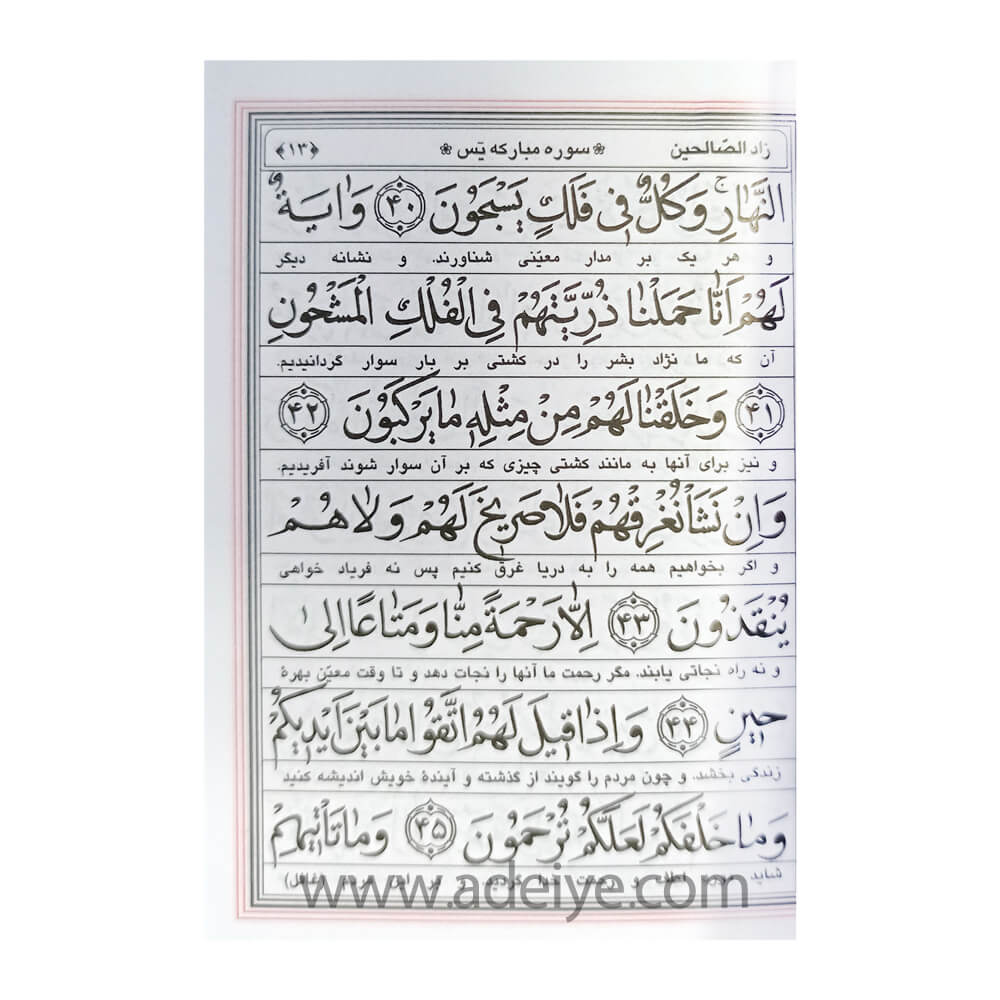 زاد الصّالحین ❀ سوره مبارکه یٓس ❀ ﴿۱۳﴾
النَّهٰارِ ۚ وَكُلٌّ فٖى فَلَكٍ يَسْبَحُونَ ﴿۴۰﴾ وَاٰيَةٌ
و هر یک بر مدار معیّنی شناورند. و نشانه دیگر
لَهُمْ اَنّٰا حَمَلْنٰا ذُرِّيَّتَهُمْ فِى الْفُلْكِ الْمَشْحُونِ
آن که ما نژاد بشر را در کشتی بر بار سوار گردانیدیم.
﴿۴۱﴾ وَخَلَقْنٰا لَهُمْ مِنْ مِثْلِهٖ مٰا يَرْكَبُونَ ﴿۴۲﴾
و نیز برای آنها به مانند کشتی چیزی که بر آن سوار شوند آفریدیم.
وَاِنْ نَشَأْ نُغْرِقْهُمْ فَلٰا صَرٖيخَ لَهُمْ وَلٰا هُمْ
و اگر بخواهیم همه را به دریا غرق کنیم پس نه فریاد خواهی
يُنْقَذُونَ ﴿۴۳﴾ اِلّٰا رَحْمَةً مِنّٰا وَمَتٰاعًا اِلىٰ
و نه راه نجاتی یابند. مگر رحمت ما آنها را نجات دهد و تا وقت معیّن بهرهٔ
حٖينٍ ﴿۴۴﴾ وَاِذٰا قٖيلَ لَهُمُ اتَّقُوا مٰا بَيْنَ اَيْدٖيكُمْ
زندگی بخشد. و چون مردم را گویند از گذشته و آیندهٔ خویش اندیشه کنید
وَمٰا خَلْفَكُمْ لَعَلَّكُمْ تُرْحَمُونَ ﴿۴۵﴾ وَمٰا تَأْتٖيهِمْ
شاید مورد لطف و رحمت خدا گردید و بر این مردم (غافل)
www.adeiye.com